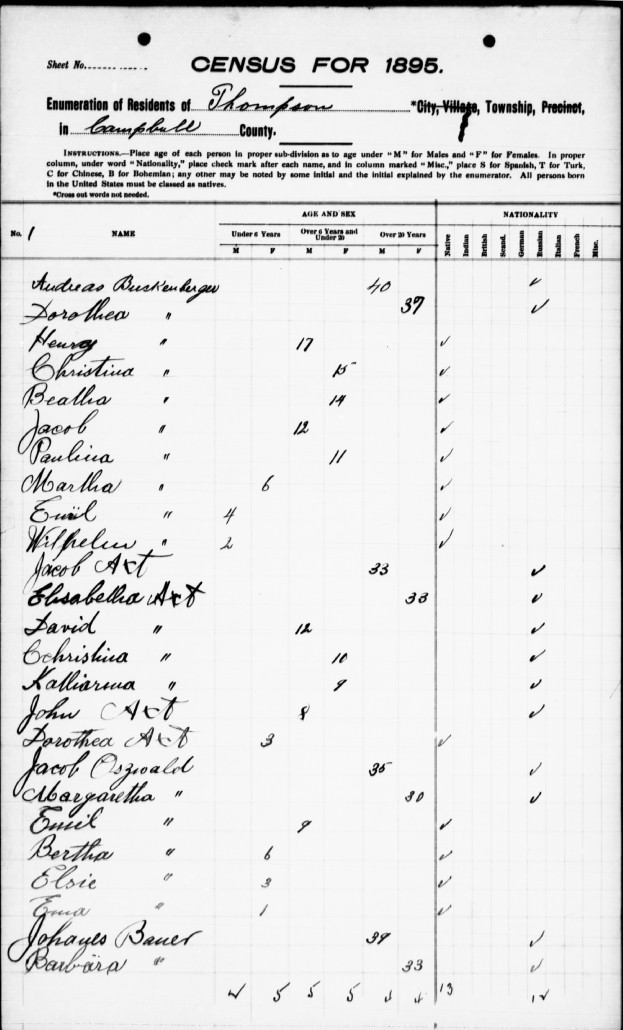 Sheet No. CENSUS FOR 1895.
Enumeration of Residents of Thompson *City, Village, Township, Precinct,
in Campbell County.
INSTRUCTIONS.—Place age of each person in proper sub-division as to age under "M" for Males and "F" for Females. In proper
column, under word "Nationality," place check mark after each name, and in column marked "Misc.," place S for Spanish, T for Turk,
C for Chinese, B for Bohemian; any other may be noted by some initial and the initial explained by the enumerator. All persons born
in the United States must be classed as natives.
*Cross out words not needed.
AGE AND SEX NATIONALITY
No. 1 NAME Under 6 Years Over 6 Years and Under 20 Over 20 Years Native Indian British Scand. German Russian Italian French Misc.
M F M F M F
Andreas Buckenberger 40 ✓
Dorothea " 37 ✓
Henry " 17 ✓
Christina " 15 ✓
Beatha " 14 ✓
Jacob " 12 ✓
Paulina " 11 ✓
Martha " 6 ✓
Emil " 4 ✓
Wilhelm " 2 ✓
Jacob Axt 33 ✓
Elisabetha Axt 33 ✓
David " 12 ✓
Cchristina " 10 ✓
Katharina " 9 ✓
John Axt 8 ✓
Dorothea Axt 3 ✓
Jacob Oszwald 35 ✓
Margaretha " 30 ✓
Emil " 9 ✓
Bertha " 6 ✓
Elsie " 3 ✓
Ema " 1 ✓
Johanes Bauer 39 ✓
Barbära " 33 ✓
5 5 5 4 13 12